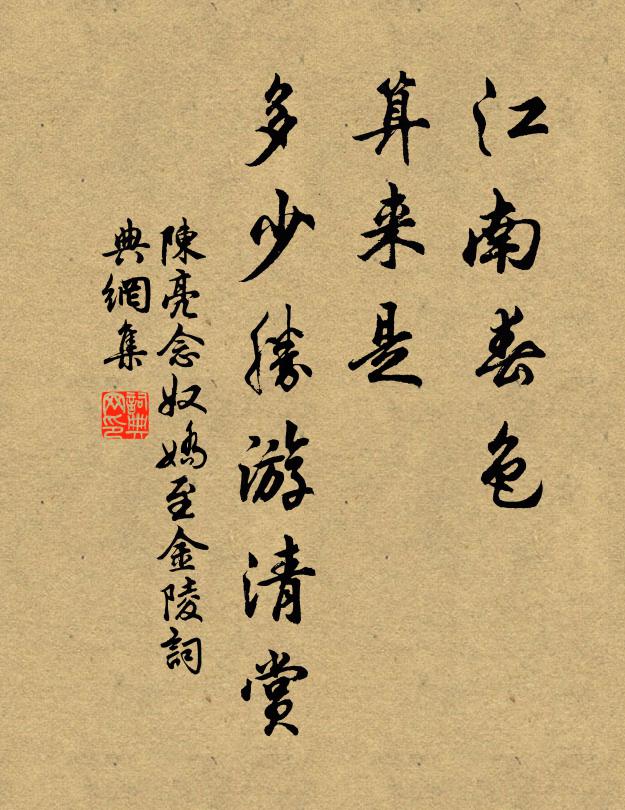 江南春色
算来是
多少勝游清賞
陳亮念奴嬌至金陵詞
典網集
詞典
网印